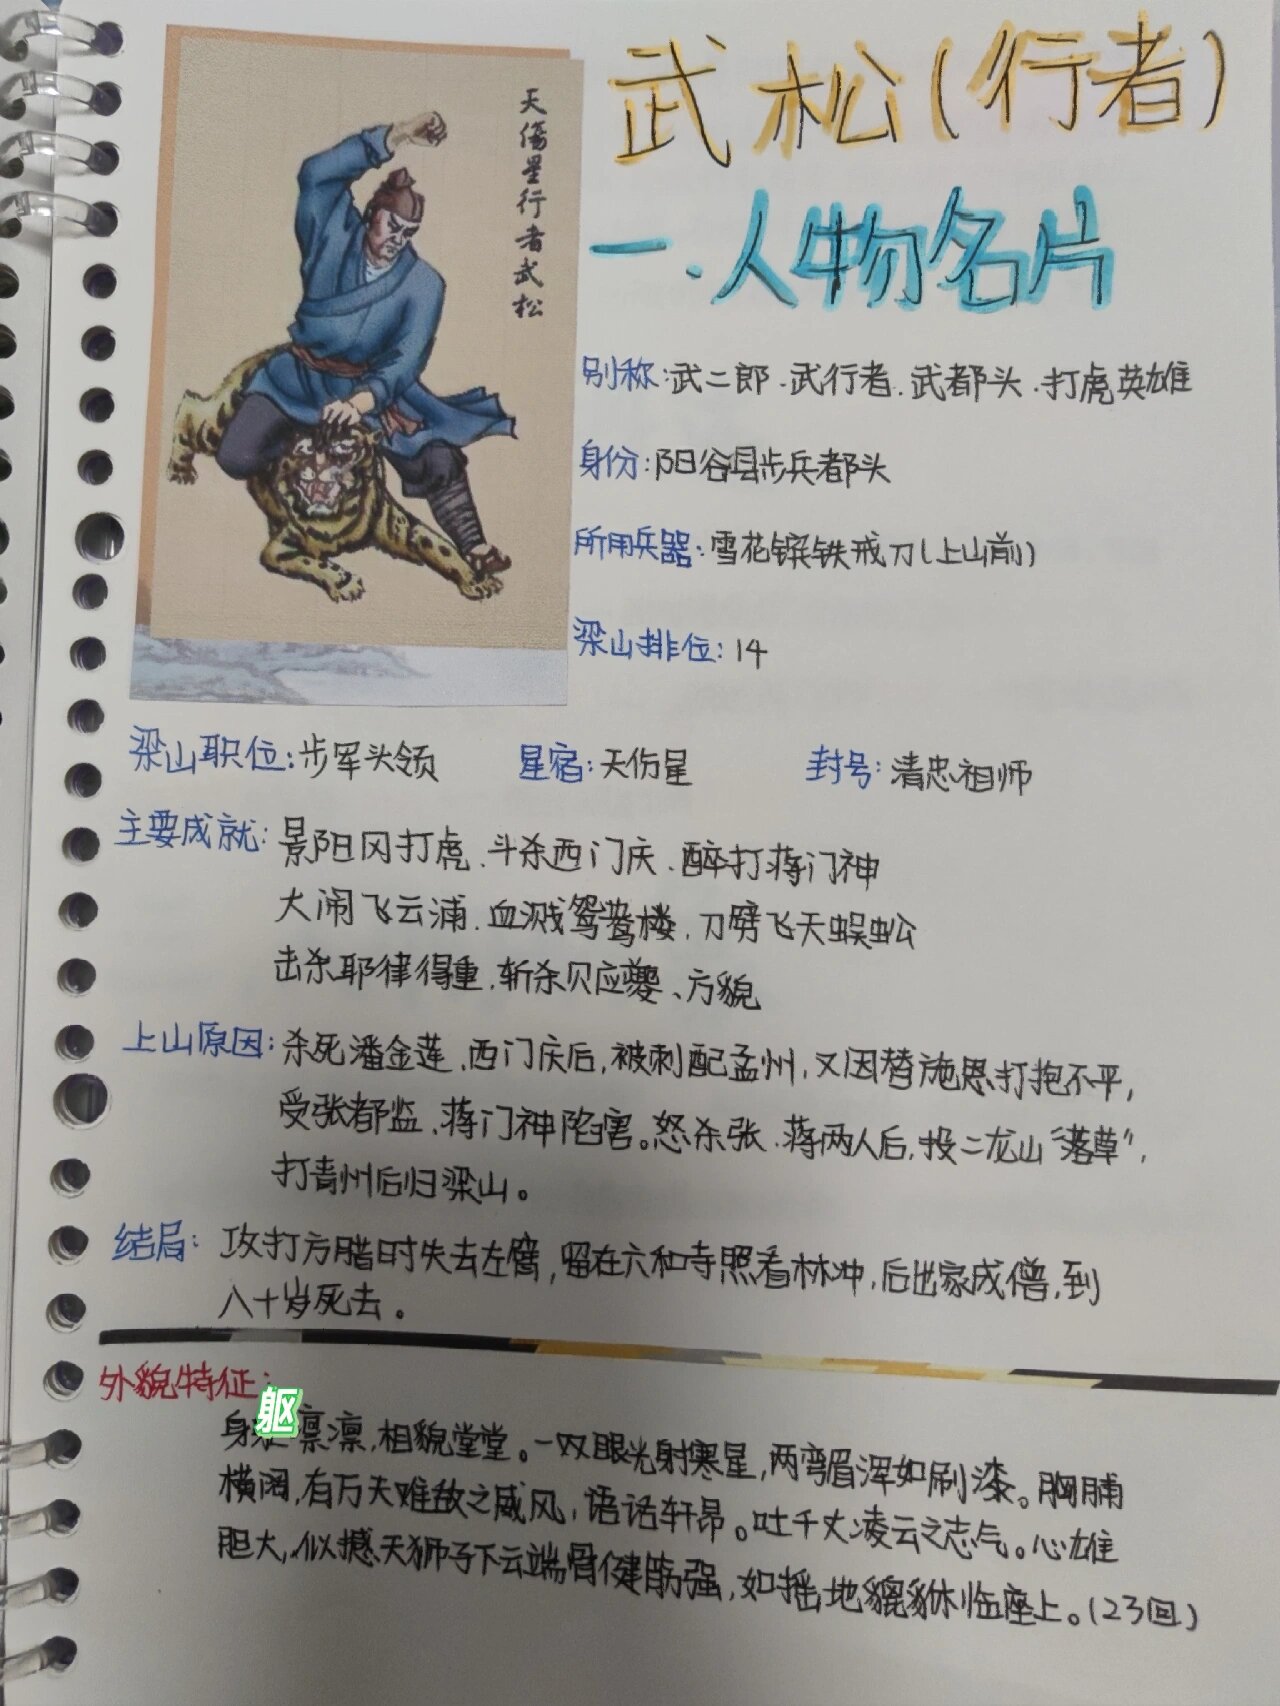 天傷星行者武松
武松(行者)
一.人物名片
别称:武二郎.武行者.武都头.打虎英雄
身份:阳谷县步兵都头
所用兵器:雪花镔铁戒刀(上山前)
梁山排位:14
梁山职位:步军头领 星宿:天伤星 封号:清忠祖师
主要成就:景阳冈打虎、斗杀西门庆、醉打蒋门神
大闹飞云浦、血溅鸳鸯楼、刀劈飞天蜈蚣
击杀耶律得重、斩杀贝应夔、方貌
上山原因:杀死潘金莲、西门庆后,被刺配孟州,又因替施恩打抱不平,
受张都监、蒋门神陷害。怒杀张、蒋两人后,投二龙山“落草”,
打青州后归梁山。
结局:攻打方腊时失去左臂,留在六和寺照看林冲,后出家成僧,到
八十岁死去。
外貌特征:
身躯凛凛,相貌堂堂。一双眼光射寒星,两弯眉浑如刷漆。胸脯
横阔,有万夫难敌之威风,语话轩昂。吐千丈凌云之志气。心雄
胆大,似撼天狮子下云端骨健筋强,如摇地貔貅临座上。(23回)